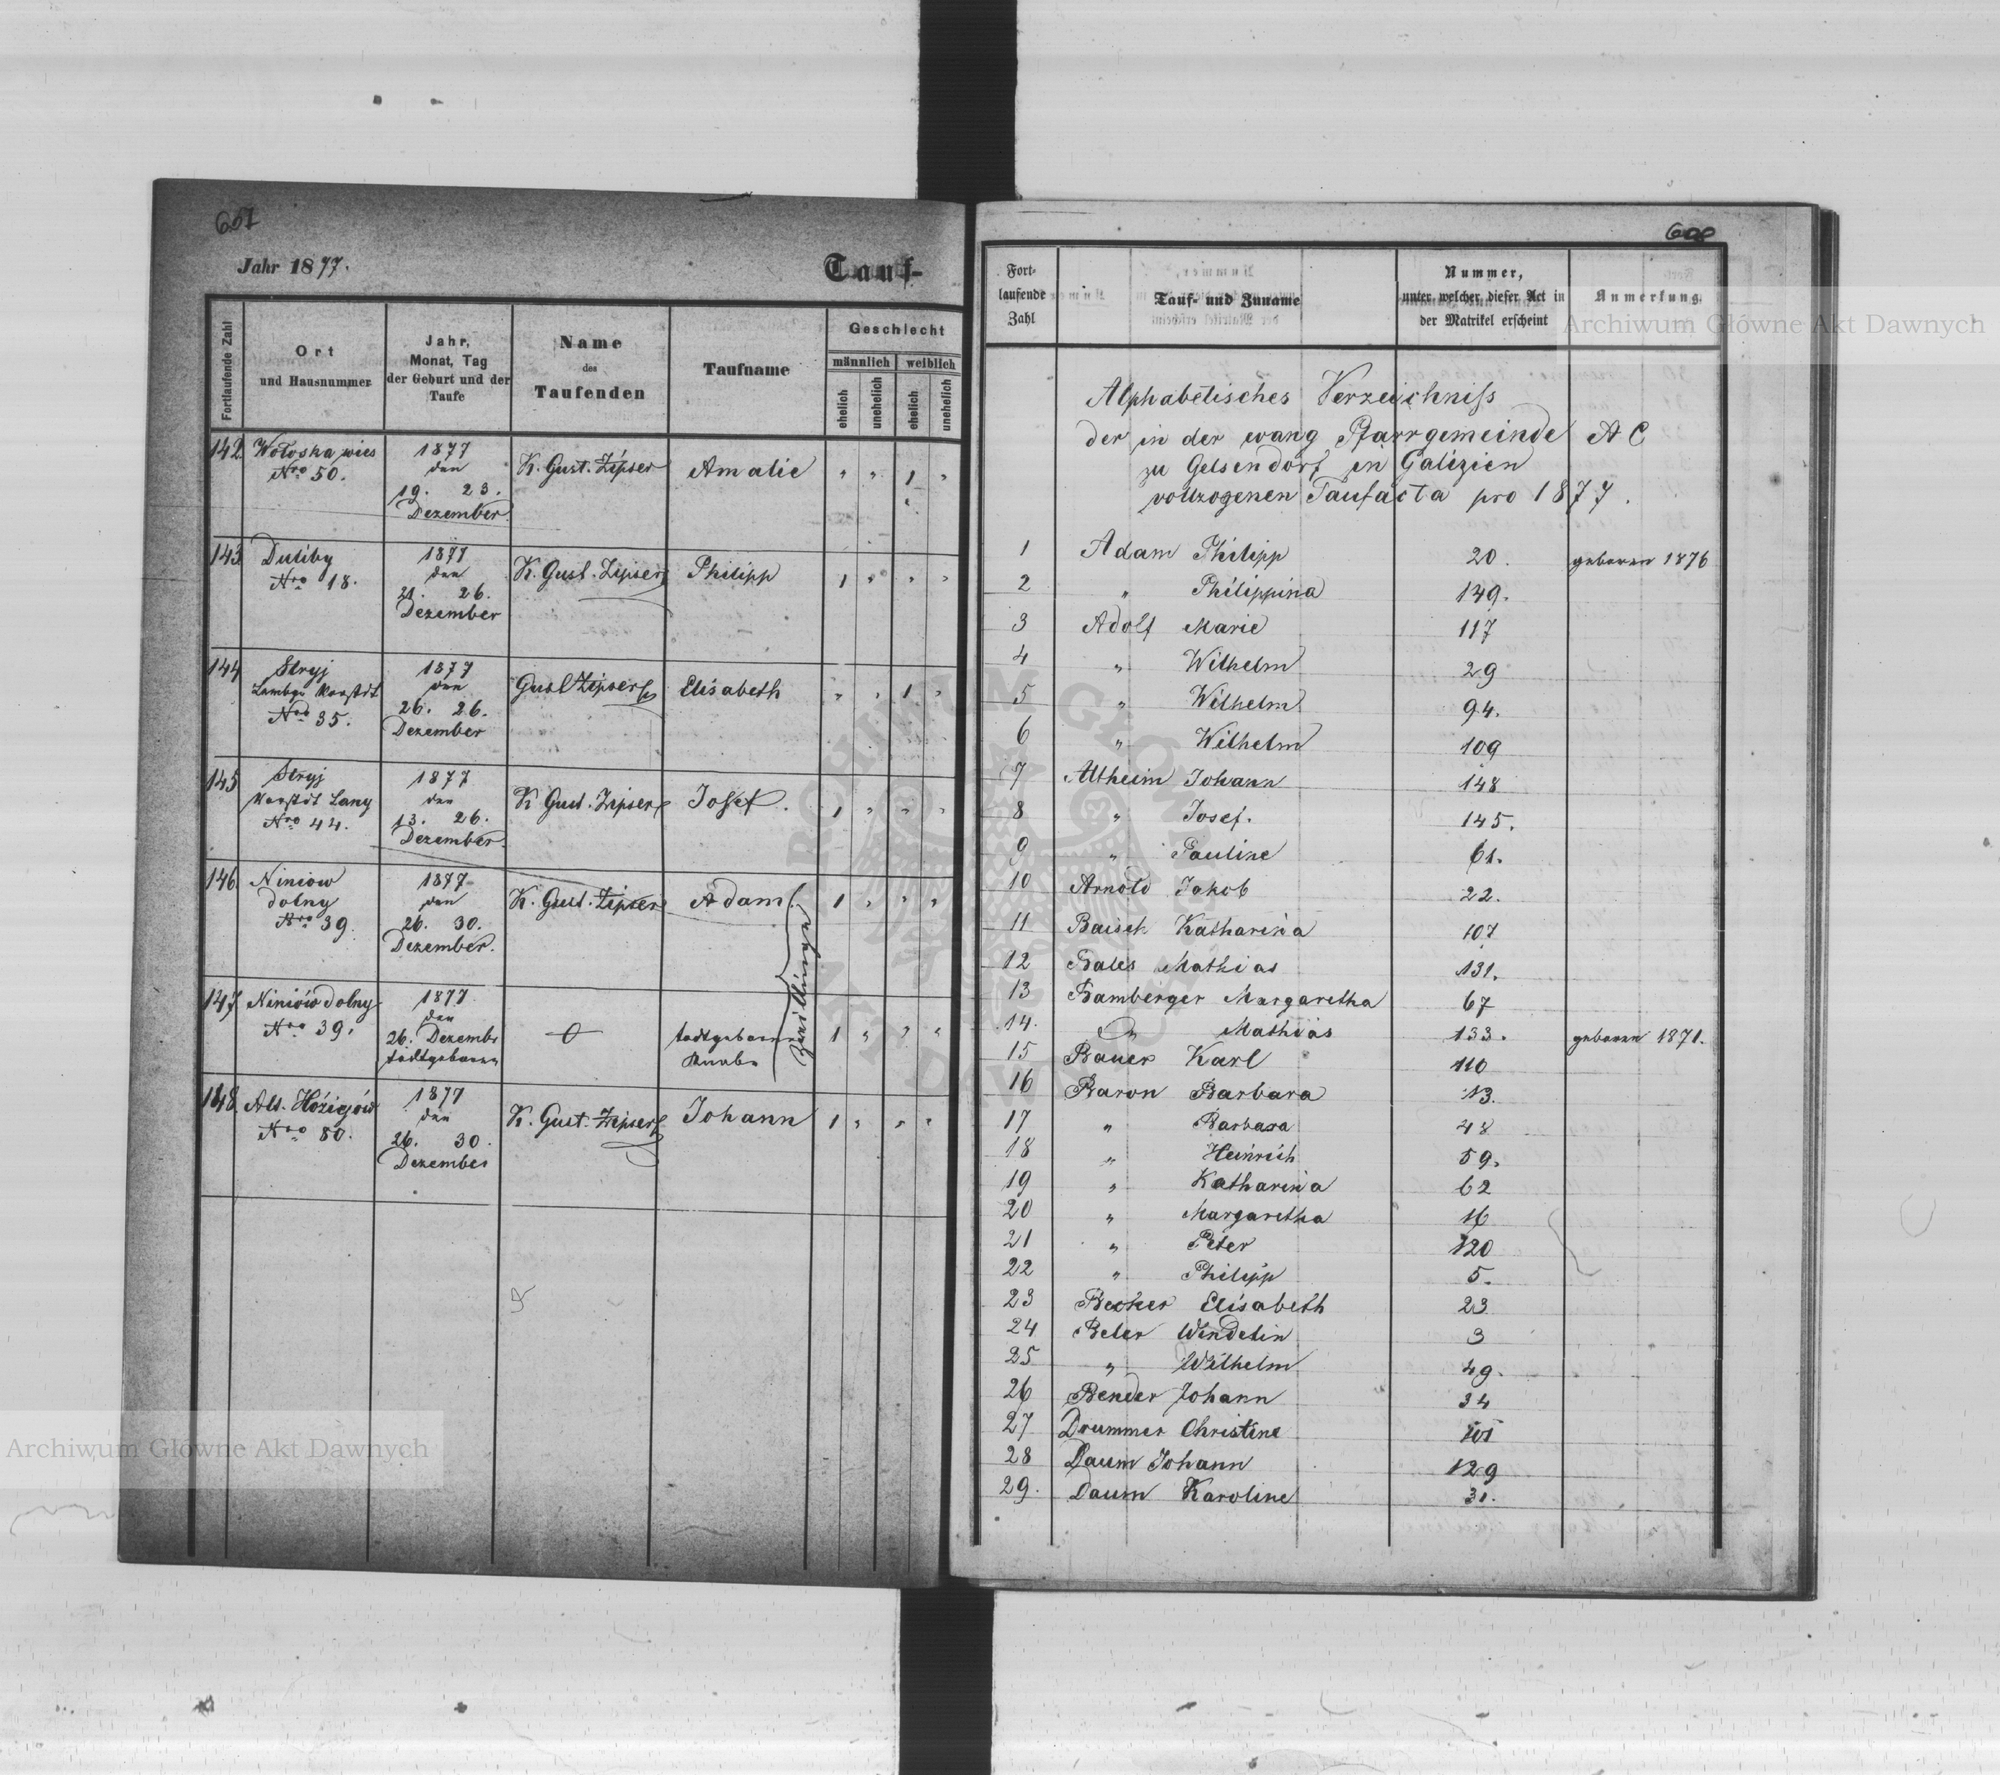 607
Jahr 1877.
Tauf-
Fortlaufende Zahl
Ort
und Hausnummer
Jahr,
Monat, Tag
der Geburt und der
Taufe
Name
des
Taufenden
Taufname
Geschlecht
männlich
weiblich
ehelich
unehelich
ehelich
unehelich
142 Wołoska wies 1877 K. Gust. Zipser Amalie " " 1 "
Nro 50. den
19. 23.
Dezember.
143 Duliby 1877 K. Gust. Zipser Philipp 1 " " "
Nro 18. den
21. 26.
Dezember
144 Stryj 1877 Gust Zipser Elisabeth " " 1 "
Lembgr Vorstdt den
Nro 35. 26. 26.
Dezember
145 Stryj 1877 K Gust. Zipser Josef. 1 " " "
Vorstdt Lany den
Nro 44. 13. 26.
Dezember
146 Niniow 1877 K. Gust. Zipser Adam 1 " " "
dolny den
Nro 39. 26. 30.
Dezember.
Zwillinge
147 Niniów dolny 1877 todtgeborner 1 " " "
Nro 39. den Knabe
26. Dezembr
todtgeboren
148 Alt. 1877 K. Gust. Zipser Johann 1 " " "
Nro 80. den
26. 30.
Dezember
608
Fort-
laufende
Zahl
Tauf- und Zuname
Nummer,
unter welcher dieser Act in
der Matrikel erscheint
Anmerkung
Alphabetisches Verzeichniss
der in der evang Pfarrgemeinde A C
zu Gelsendorf in Galizien
vollzogenen Taufacta pro 1877.
1 Adam Philipp 20. geboren 1876
2 " Philippina 149.
3 Adolf Marie 117
4 " Wilhelm 29
5 " Wilhelm 94.
6 " Wilhelm 109
7 Altheim Johann 148
8 " Josef. 145.
9 " Pauline 61.
10 Arnold Jakob 22.
11 Baisch Katharina 107
12 Bales Mathias 131.
13 Bamberger Margaretha 67
14. " Mathias 133. geboren 1871.
15 Bauer Karl 110
16 Baron Barbara 13.
17 " Barbara 48
18 " Heinrich 59.
19 " Katharina 62
20 " Margaretha 16
21 " Peter 120
22 " Philipp 5.
23 Becker Elisabeth 23
24 Beler Wendelin 3
25 " Wilhelm 49.
26 Bender Johann 34
27 Drummer Christine 101
28 Daum Johann 129
29. Daum Karoline 31.
Archiwum Główne Akt Dawnych
Archiwum Główne Akt Dawnych
ARCHIWUM GŁÓWNE AKT DAWNYCH